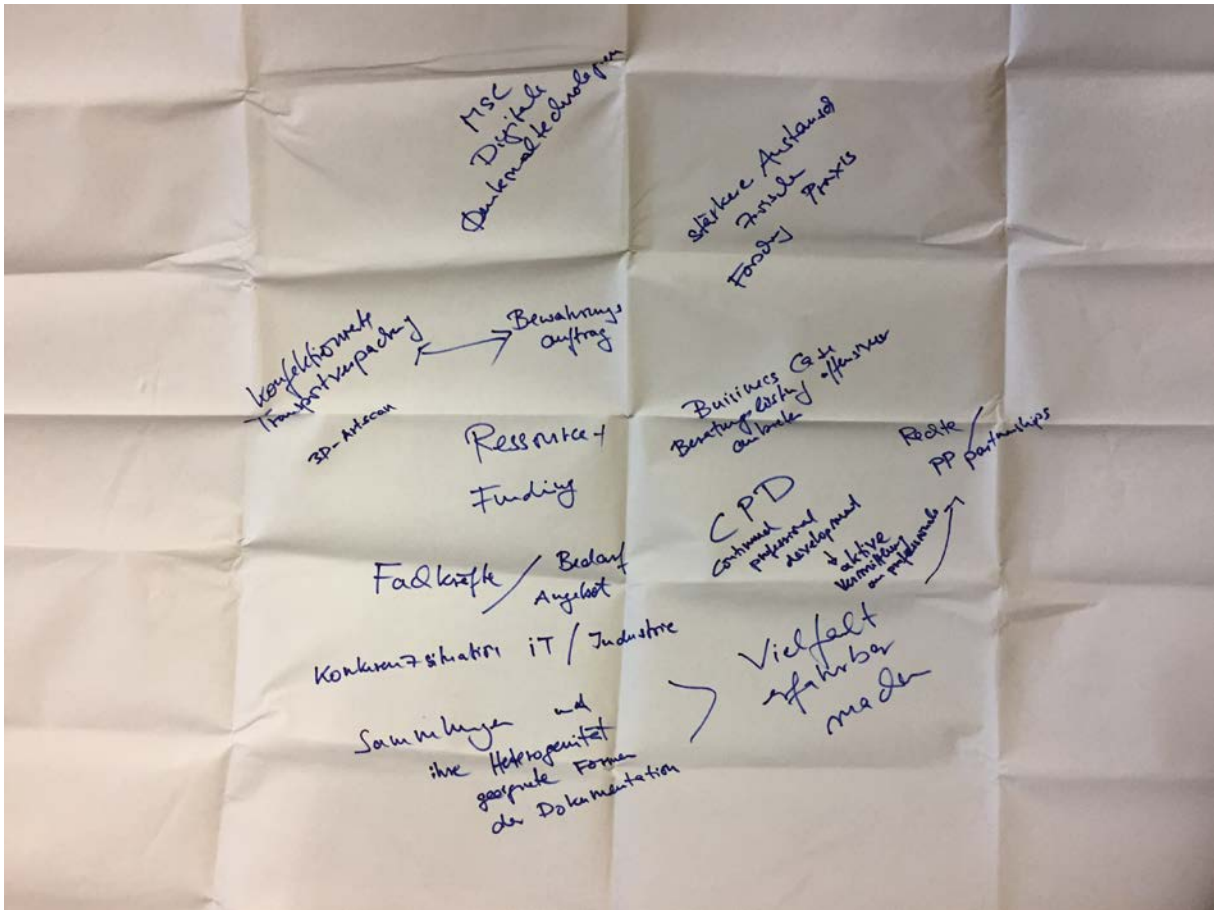 MSC
Digitale
Denkmaltechnologien
stärkere Austausch
zwischen
Forschung Praxis
Konfektionierte
Transportverpackung
Bewahrungs
auftrag
3D-Artscan
Ressource +
Funding
Business Case
Beratungsleistung offensiver
anbieten
Rechte /
PP partnerships
CPD
continued
professional
development
+ aktive
Vermittlung
an professionals
Fachkräfte / Bedarf
Angebot
Konkurrenzsituation iT / Industrie
Sammlungen und
ihre Heterogenität
geeignete Formen
der Dokumentation
Vielfalt
erfahrbar
machen